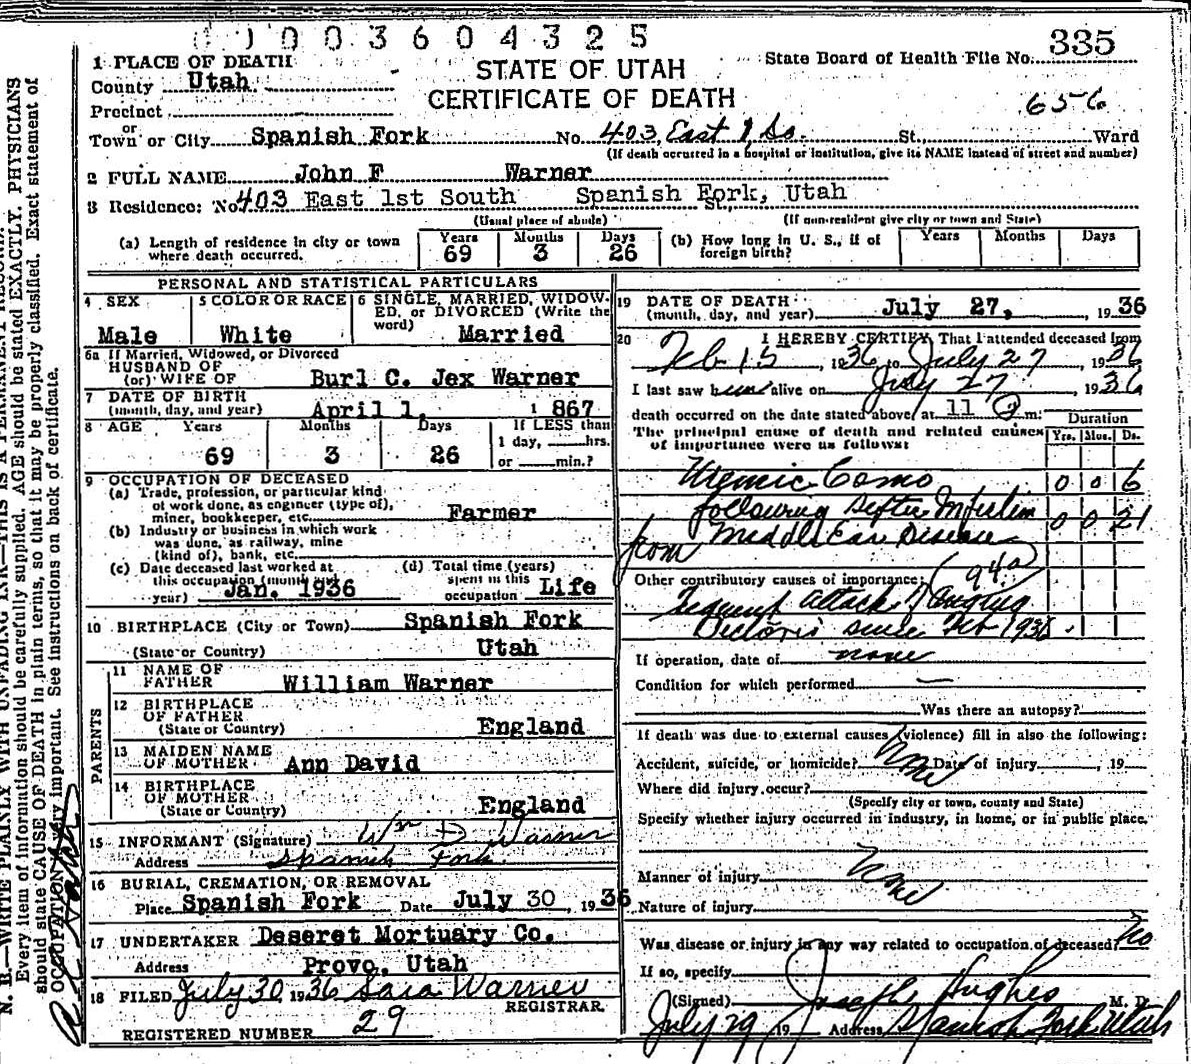 0 0 0 3 6 0 4 3 2 5
335
State Board of Health File No.
656
STATE OF UTAH
CERTIFICATE OF DEATH
1 PLACE OF DEATH
County Utah
Precinct
or
Town or City Spanish Fork No. 403 East 1 So. St. Ward
(If death occurred in a hospital or institution, give its NAME instead of street and number)
2 FULL NAME John F Warner
3 Residence: No. 403 East 1st South St. Spanish Fork, Utah
(Usual place of abode) (If non-resident give city or town and State)
(a) Length of residence in city or town where death occurred. Years 69 Months 3 Days 26
(b) How long in U. S., if of foreign birth? Years Months Days
PERSONAL AND STATISTICAL PARTICULARS
4 SEX Male
5 COLOR OR RACE White
6 SINGLE, MARRIED, WIDOWED, or DIVORCED (Write the word) Married
6a If Married, Widowed, or Divorced
HUSBAND OF
(or) WIFE OF Burl C. Jex Warner
7 DATE OF BIRTH
(month, day, and year) April 1, 1867
8 AGE Years 69 Months 3 Days 26
If LESS than
1 day, hrs.
or min.?
9 OCCUPATION OF DECEASED
(a) Trade, profession, or particular kind
of work done, as engineer (type of),
miner, bookkeeper, etc. Farmer
(b) Industry or business in which work
was done, as railway, mine
(kind of), bank, etc.
(c) Date deceased last worked at
this occupation (month
year) Jan. 1936
(d) Total time (years)
spent in this
occupation Life
10 BIRTHPLACE (City or Town) Spanish Fork
(State or Country) Utah
PARENTS
11 NAME OF
FATHER William Warner
12 BIRTHPLACE
OF FATHER
(State or Country) England
13 MAIDEN NAME
OF MOTHER Ann David
14 BIRTHPLACE
OF MOTHER
(State or Country) England
15 INFORMANT (Signature) Wm D Warner
Address Spanish Fork
16 BURIAL, CREMATION, OR REMOVAL
Place Spanish Fork Date July 30, 1936
17 UNDERTAKER Deseret Mortuary Co.
Address Provo, Utah
18 FILED July 30 1936 Sara Warner
REGISTRAR
REGISTERED NUMBER 29
19 DATE OF DEATH
(month, day, and year) July 27, , 1936
20 I HEREBY CERTIFY, That I attended deceased from
Feb 15, 1936 to July 27, 1936
I last saw him alive on July 27 1936
death occurred on the date stated above, at 11 P m.
The principal cause of death and related causes
of importance were as follows:
Duration
Yrs. Mos. Ds.
Uremic Coma 0 0 6
following 0 0 21
from Middle Ear Disease
Other contributory causes of importance: (94a)
Frequent attacks of Angina
Pectoris since Feb 1936
If operation, date of none
Condition for which performed —
Was there an autopsy?
If death was due to external causes (violence) fill in also the following:
Accident, suicide, or homicide? None Date of injury , 19
Where did injury occur?
(Specify city or town, county and State)
Specify whether injury occurred in industry, in home, or in public place.
Manner of injury None
Nature of injury
Was disease or injury in any way related to occupation of deceased? No
If so, specify
(Signed) Joseph Hughes M. D.
July 29 19 Address Spanish Fork Utah
N. B.—WRITE PLAINLY WITH UNFADING INK—THIS IS A PERMANENT RECORD
Every item of information should be carefully supplied. AGE should be stated EXACTLY. PHYSICIANS
should state CAUSE OF DEATH in plain terms, so that it may be properly classified. Exact statement of
OCCUPATION very important. See instructions on back of certificate.